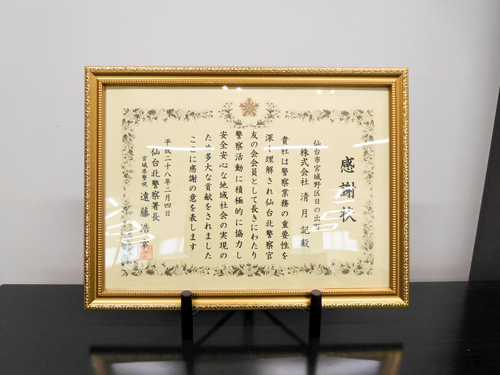 感謝状
仙台市宮城野区日の出町
株式会社 清月記殿
貴社は警察業務の重要性を
深く理解され仙台北警察官
友の会会員として長きにわたり
警察活動に積極的に協力し
安全安心な地域社会の実現の
ため多大な貢献をされました
ここに感謝の意を表します
平成二十八年二月四日
仙台北警察署長
宮城県警視 遠藤浩